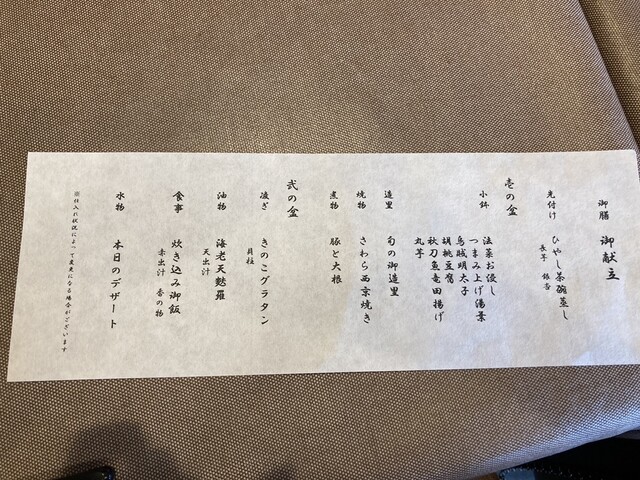 御膳 御献立
先付け ひやし茶碗蒸し
長芋 銀杏
壱の盆
小鉢 法蓮お浸し
つまみ上げ湯葉
烏賊明太子
胡桃豆腐
秋刀魚竜田揚げ
丸芋
造里 旬の御造里
焼物 さわら西京焼き
煮物 豚と大根
弐の盆
凌ぎ きのこグラタン
貝柱
油物 海老天麩羅
天出汁
食事 炊き込み御飯
赤出汁 香の物
水物 本日のデザート
※仕入れ状況によって変更になる場合がございます